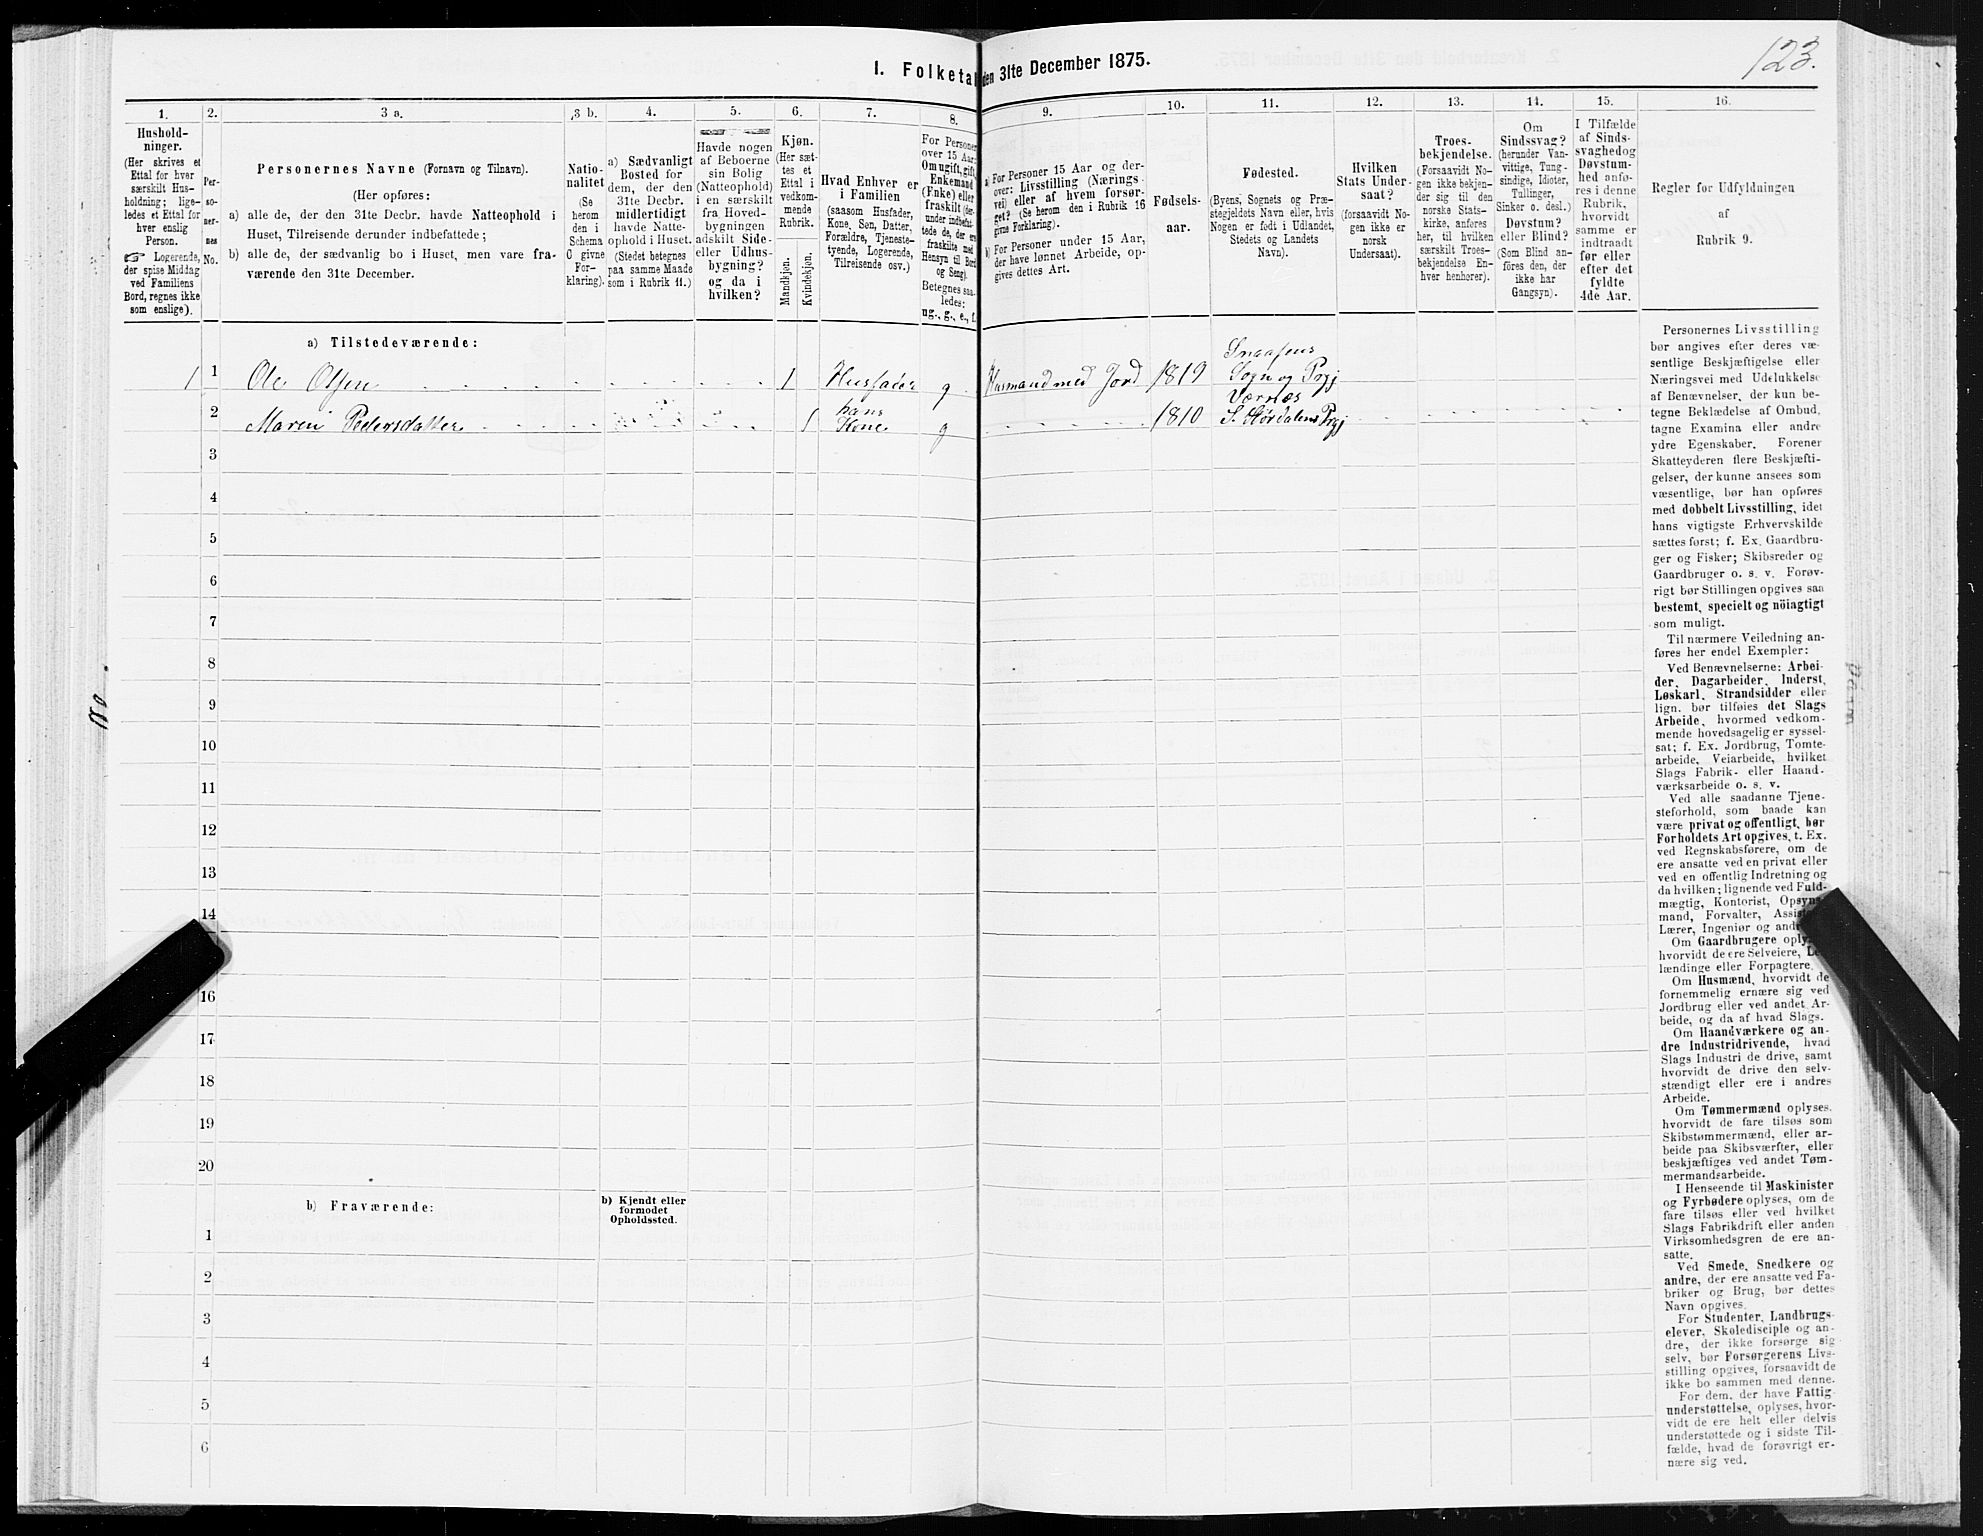 123.
I. Folketal den 31te December 1875.
1.
Hushold-
ninger.
(Her skrives et
Ettal for hver
særskilt Hus-
holdning; lige-
ledes et Ettal for
hver enslig
Person.
☞ Logerende,
der spise Middag
ved Familiens
Bord, regnes ikke
som enslige).
2.
Per-
so-
ner-
nes
No.
3 a.
Personernes Navne (Fornavn og Tilnavn).
(Her opføres:
a) alle de, der den 31te Decbr. havde Natteophold i
Huset, Tilreisende derunder indbefattede;
b) alle de, der sædvanlig bo i Huset, men vare fra-
værende den 31te December.
3 b.
Natio-
nalitet
(Se
herom
den i
Schema
O givne
For-
klaring).
4.
a) Sædvanligt
Bosted for
dem, der den
31te Decbr.
midlertidigt
havde Natte-
ophold i Huset.
(Stedet betegnes
paa samme Maade
som i Rubrik 11.)
5.
Havde nogen
af Beboerne
sin Bolig
(Natteophold)
i en særskilt
fra Hoved-
bygningen
adskilt Side-
eller Udhus-
bygning?
og da i
hvilken?
6.
Kjøn.
(Her sæt-
tes et
Ettal i
vedkom-
mende
Rubrik.
Mandkjøn.
Kvindekjøn.
7.
Hvad Enhver er
i Familien
(saasom Husfader,
Kone, Søn, Datter,
Forældre, Tjeneste-
tyende, Logerende,
Tilreisende osv.)
8.
For Personer
over 15 Aar:
Om ugift, gift,
Enkemand
(Enke) eller
fraskilt (der-
under indbefat-
tede de, der ere
fraskilte med
Hensyn til Bord
og Seng).
Betegnes saa-
ledes:
ug., g., e., f.
9.
a) For Personer 15 Aar og der-
over: Livsstilling (Nærings-
vei) eller af hvem forsør-
get? (Se herom den i Rubrik 16
givne Forklaring).
b) For Personer under 15 Aar,
der have lønnet Arbeide, op-
gives dettes Art.
10.
Fødsels-
aar.
11.
Fødested.
(Byens, Sognets og Præ-
stegjeldets Navn eller, hvis
Nogen er født i Udlandet,
Stedets og Landets
Navn).
12.
Hvilken
Stats Under-
saat?
(forsaavidt No-
gen ikke er
norsk
Undersaat).
13.
Troes-
bekjendelse.
(Forsaavidt No-
gen ikke bekjen-
der sig til den
norske Stats-
kirke, anføres
her, til hvilken
særskilt Troes-
bekjendelse En-
hver henhører).
14.
Om
Sindssvag?
(herunder Van-
vittige, Tung-
sindige, Idioter,
Tullinger,
Sinker o. desl.)
Døvstum?
eller Blind?
(Som Blind an-
føres den, der
ikke har
Gangsyn).
15.
I Tilfælde
af Sinds-
svaghedog
Døvstum-
hed anfø-
res i denne
Rubrik,
hvorvidt
samme er
indtraadt
før eller
efter det
fyldte
4de Aar.
16.
Regler før Udfyldningen
af
Rubrik 9.
a) Tilstedeværende:
1 1 Ole Olsen 1 Husfader g Husmand med Jord 1819 Snaasens
Sogn og Prgj
2 Maren Pedersdatter 1 hans
Kone g 1810 Værnæs
S. Stjørdalens Prgj
3
4
5
6
7
8
9
10
11
12
13
14
16
17
18
19
20
b) Fraværende:
b) Kjendt eller
formodet
Opholdssted.
1
2
3
4
5
6
Personernes Livsstilling
bør angives efter deres væ-
sentlige Beskjæftigelse eller
Næringsvei med Udelukkelse
af Benævnelser, der kun be-
tegne Beklædelse af Ombud,
tagne Examina eller andre
ydre Egenskaber. Forener
Skatteyderen flere Beskjæfti-
gelser, der kunne ansees som
væsentlige, bør han opføres
med dobbelt Livsstilling, idet
hans vigtigste Erhvervskilde
sættes først; f. Ex. Gaardbru-
ger og Fisker; Skibsreder og
Gaardbruger o. s. v. Forøv-
rigt bør Stillingen opgives saa
bestemt, specielt og nöiagtigt
som muligt.
Til nærmere Veiledning an-
føres her endel Exempler:
Ved Benævnelserne: Arbei-
der, Dagarbeider, Inderst,
Løskarl, Strandsidder eller
lign. bør tilføies det Slags
Arbeide, hvormed vedkom-
mende hovedsagelig er syssel-
sat; f. Ex. Jordbrug, Tomte-
arbeide, Veiarbeide, hvilket
Slags Fabrik- eller Haand-
værksarbeide o. s. v.
Ved alle saadanne Tjene-
steforhold, som baade kan
være privat og offentligt, bør
Forholdets Art opgives, t. Ex.
ved Regnskabsførere, om de
ere ansatte ved en privat eller
ved en offentlig Indretning og
da hvilken; lignende ved Fuld-
mægtig, Kontorist, Opsyns-
mand, Forvalter, Assistent,
Lærer, Ingeniør og andre.
Om Gaardbrugere oplyses,
hvorvidt de ere Selveiere, Lei-
lændinge eller Forpagtere.
Om Husmænd, hvorvidt de
fornemmelig ernære sig ved
Jordbrug eller ved andet Ar-
beide, og da af hvad Slags.
Om Haandværkere og an-
dre Industridrivende, hvad
Slags Industri de drive, samt
hvorvidt de drive den selv-
stændigt eller ere i andres
Arbeide.
Om Tømmermænd oplyses,
hvorvidt de fare tilsøs som
Skibstømmermænd, eller ar-
beide paa Skibsværfter, eller
beskjæftiges ved andet Tøm-
mermandsarbeide.
I Henseende til Maskinister
og Fyrbødere oplyses, om de
fare tilsøs eller ved hvilket
Slags Fabrikdrift eller anden
Virksomhedsgren de ere an-
satte.
Ved Smede, Snedkere og
andre, der ere ansatte ved Fa-
briker og Brug, bør dettes
Navn opgives.
For Studenter, Landbrugs-
elever, Skoledisciple og an-
dre, der ikke forsørge sig
selv, bør Forsørgerens Livs-
stilling opgives, forsaavidt de
ikke bo sammen med denne.
For dem, der have Fattig-
understøttelse, oplyses, hvor-
vidt de ere helt eller delvis
understøttede og i sidste Til-
fælde, hvad de forøvrigt er-
nære sig ved.